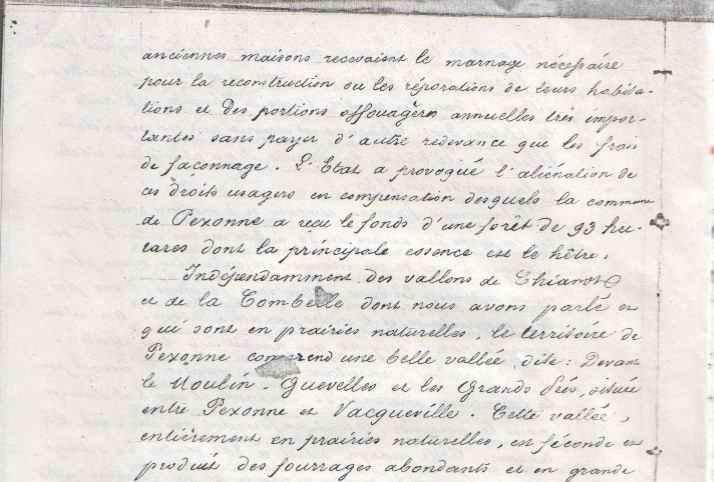 anciennes maisons recevaient le marnage nécessaire
pour la reconstruction ou les réparations de leurs habita-
tions et des portions affouagères annuelles très impor-
tantes sans payer d'autre redevance que les frais
de façonnage. L'Etat a provoqué l'aliénation de
ces droits usagers en compensation desquels la commune
de Pexonne a reçu le fonds d'une forêt de 93 hec-
tares dont la principale essence est le hêtre.
Indépendamment des vallons de
et de la Combelle dont nous avons parlé et
qui sont en prairies naturelles, le territoire de
Pexonne comprend une belle vallée dite: Devant
le Moulin, Guevelles et les Grands Prés, située
entre Pexonne et Vacqueville. Cette vallée,
entièrement en prairies naturelles, est féconde et
produit des fourrages abondants et en grande